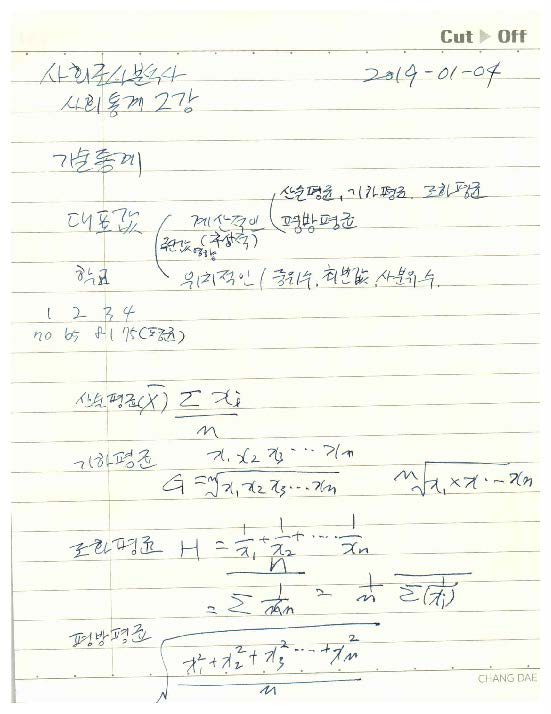 Cut ▶ Off
사회조사분석사 2019-01-04
사회통계 2강
기술통계
산술평균, 기하평균, 조화평균
대표값 계산적인 평방평균
(추상적)
학교 위치적인 ( 중위수, 최빈값, 사분위수.
1 2 3 4
70 65 81 75(평균)
산술평균(X̄) Σ xi
n
기하평균 x₁ x₂ x₃ ··· xn
G = ⁿ√x₁ x₂ x₃ ··· xn ⁿ√x₁ × x ·· xn
조화평균 H = 1/x₁ + 1/x₂ + ···· 1/xn
n
= Σ = 1/n Σ(1/xi)
평방평균
√ x₁² + x₂² + x₃² ··· + xn²
n
CHANG DAE